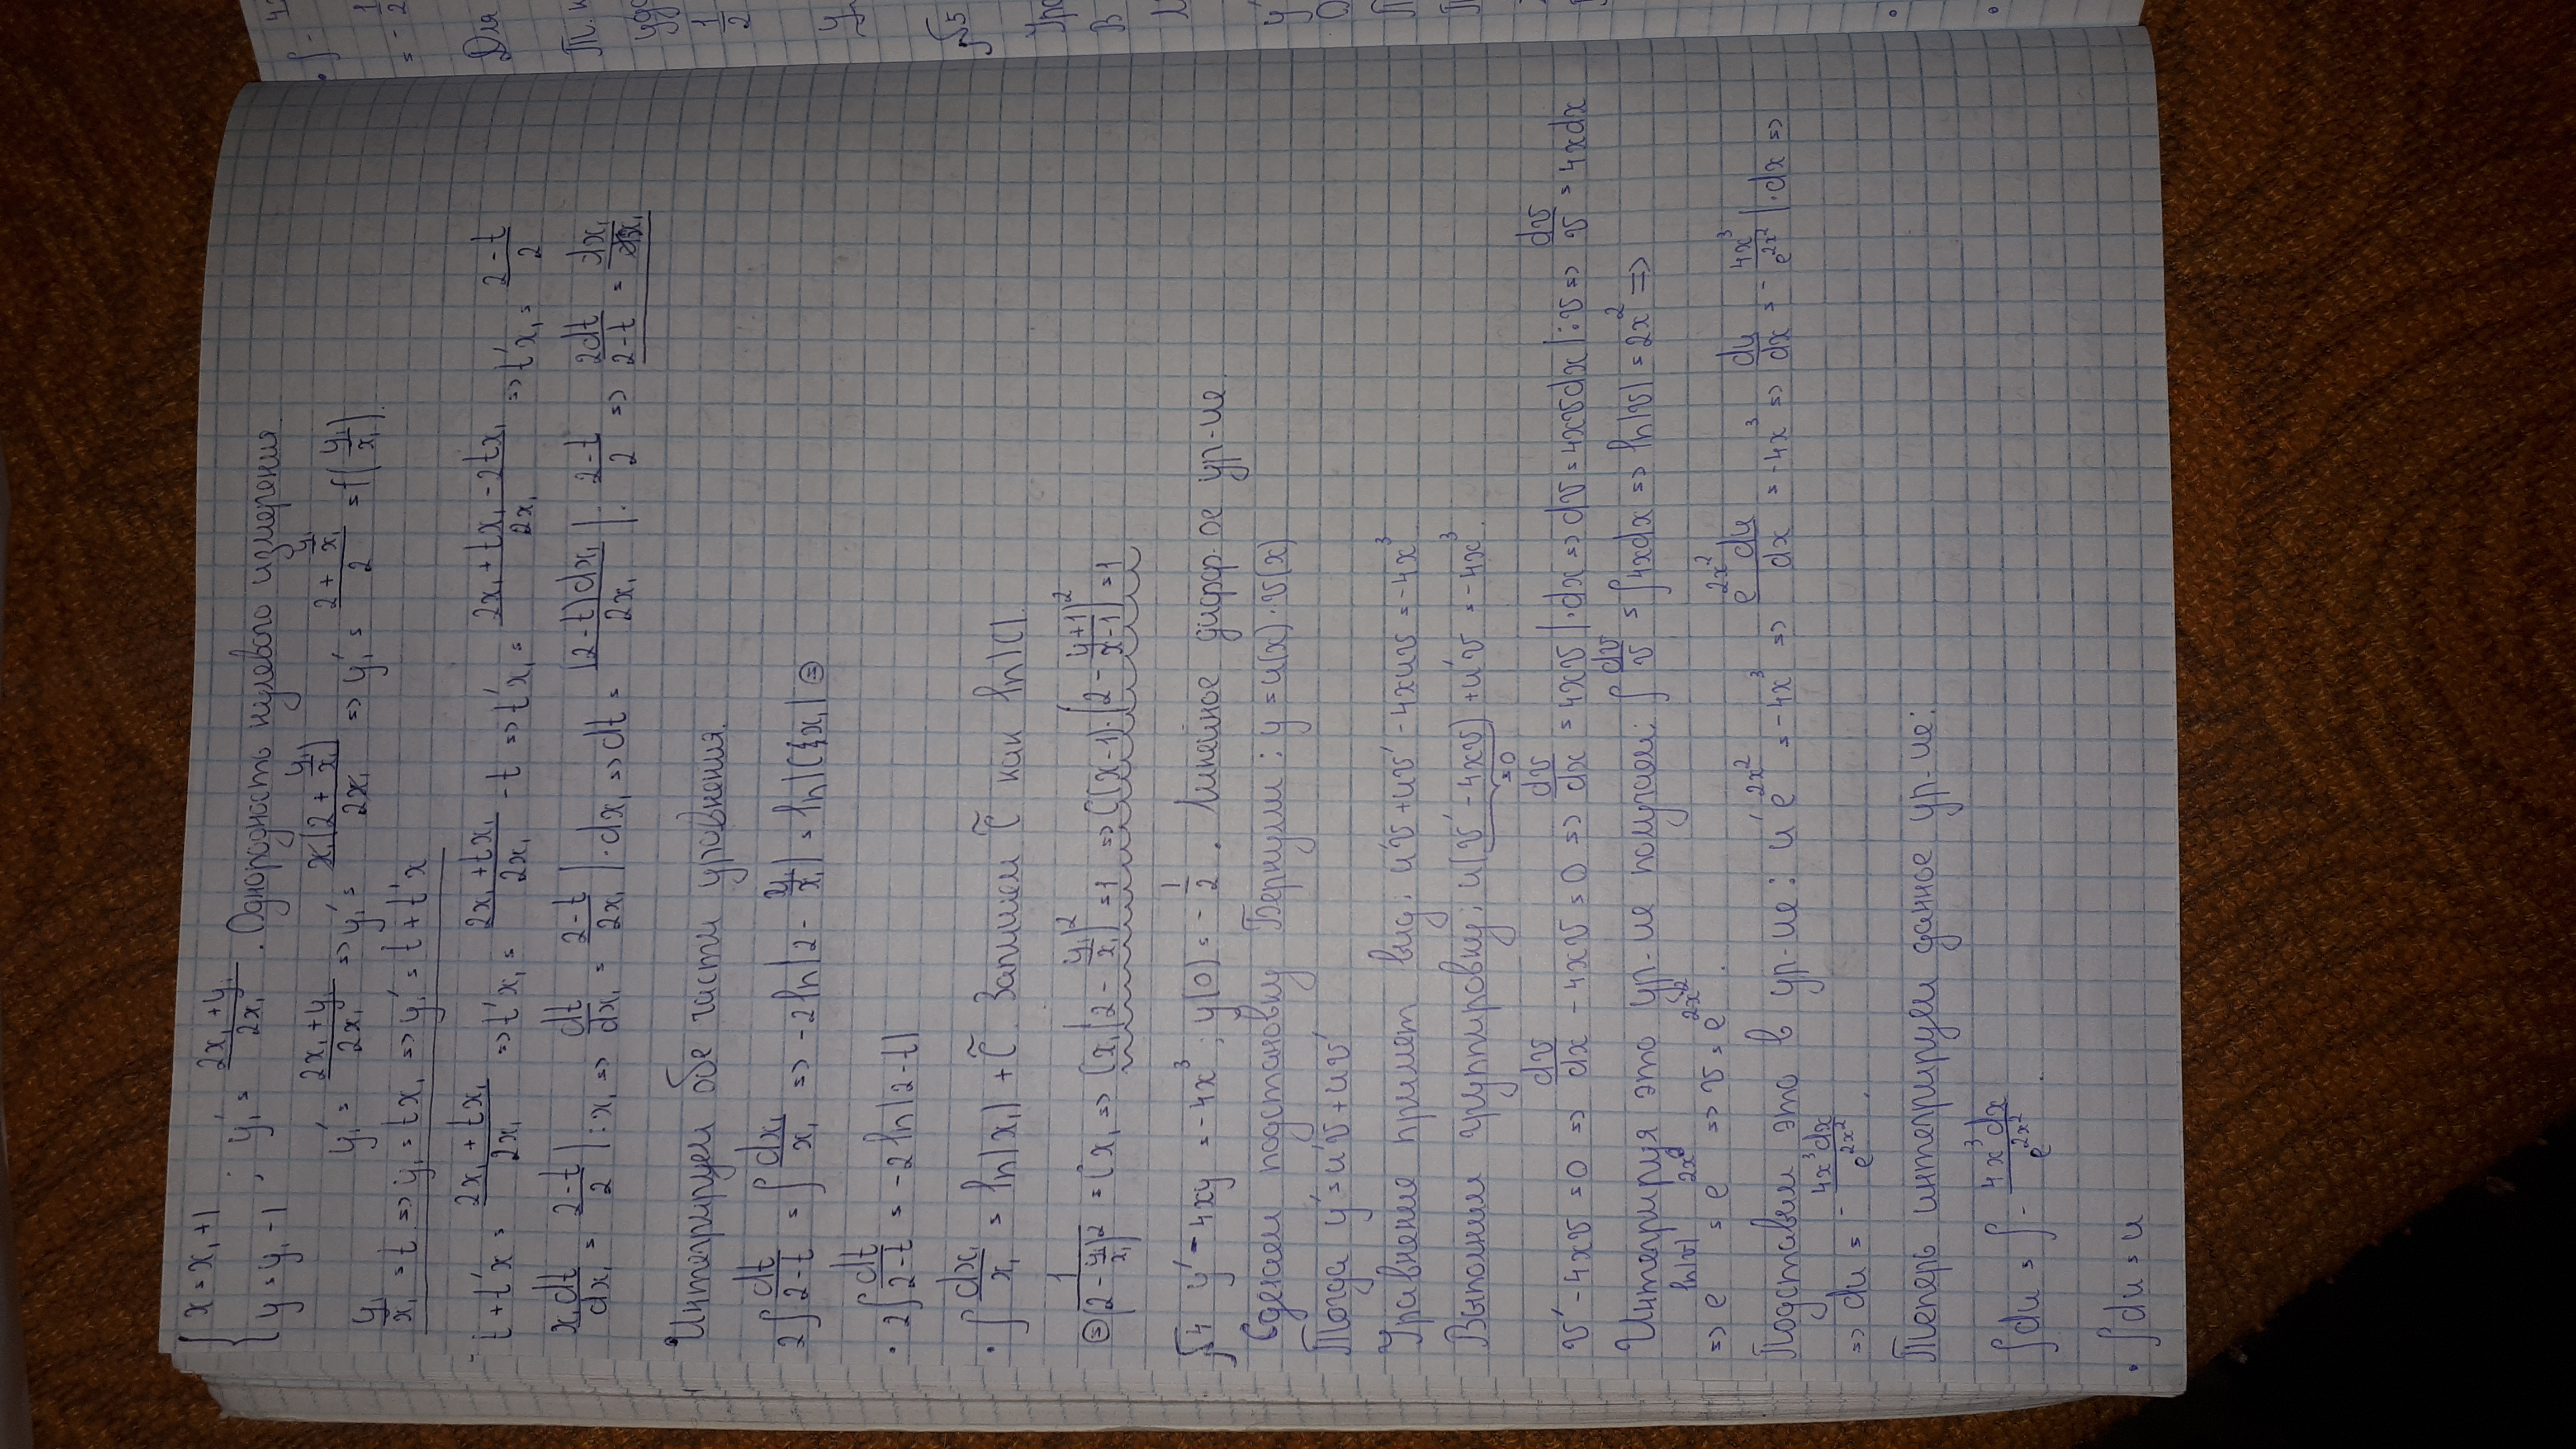 { x = x₁ + 1
y = y₁ - 1 ; y₁' = (2x₁ + y₁)/(2x₁) . Однородность нулевого измерения
y₁' = (2x₁ + y₁)/(2x₁) => y₁' = x₁(2 + y₁/x₁)/(2x₁) => y₁' = (2 + y₁/x₁)/2 = f(y₁/x₁).
y₁/x₁ = t => y₁ = tx₁ => y₁' = t + t'x
t + t'x = (2x₁ + tx₁)/(2x₁) => t'x₁ = (2x₁ + tx₁)/(2x₁) - t => t'x₁ = (2x₁ + tx₁ - 2tx₁)/(2x₁) => t'x₁ = (2-t)/2
x₁dt/dx₁ = (2-t)/2 | : x₁ => dt/dx₁ = (2-t)/(2x₁) | · dx₁ => dt = (2-t)dx₁/(2x₁) | : (2-t)/2 => 2dt/(2-t) = dx₁/x₁
Интегрируем обе части уравнения.
2∫dt/(2-t) = ∫dx₁/x₁ => -2ln|2 - y₁/x₁| = ln|Cx₁| ⊜
· 2∫dt/(2-t) = -2 ln|2-t|
· ∫dx₁/x₁ = ln|x₁| + C̃. Запишем C̃ как ln|C|.
⊜ 1/(2 - y₁/x₁)² = Cx₁ => Cx₁(2 - y₁/x₁)² = 1 => C(x-1)·(2 - (y+1)/(x-1))² = 1
№4 y' - 4xy = -4x³; y(0) = -1/2 . Линейное дифф-ое ур-ие
Сделаем подстановку Бернулли: y = u(x)·v(x)
Тогда y' = u'v + uv'
Уравнение примет вид: u'v + uv' - 4xuv = -4x³
Выполним группировку: u(v' - 4xv) + u'v = -4x³.
=0
v' - 4xv = 0 => dv/dx - 4xv = 0 => dv/dx = 4xv | · dx => dv = 4xvdx | : v => dv/v = 4xdx
Интегрируя это ур-ие получаем: ∫dv/v = ∫4xdx => ln|v| = 2x² =>
=> e^(ln|v|) = e^(2x²) => v = e^(2x²).
Подставим это в ур-ие: u'e^(2x²) = -4x³ => e^(2x²)du/dx = -4x³ => du/dx = -4x³/e^(2x²) | · dx =>
=> du = -4x³dx/e^(2x²).
Теперь интегрируем данное ур-ие:
∫du = ∫-4x³dx/e^(2x²).
· ∫du = u
Для